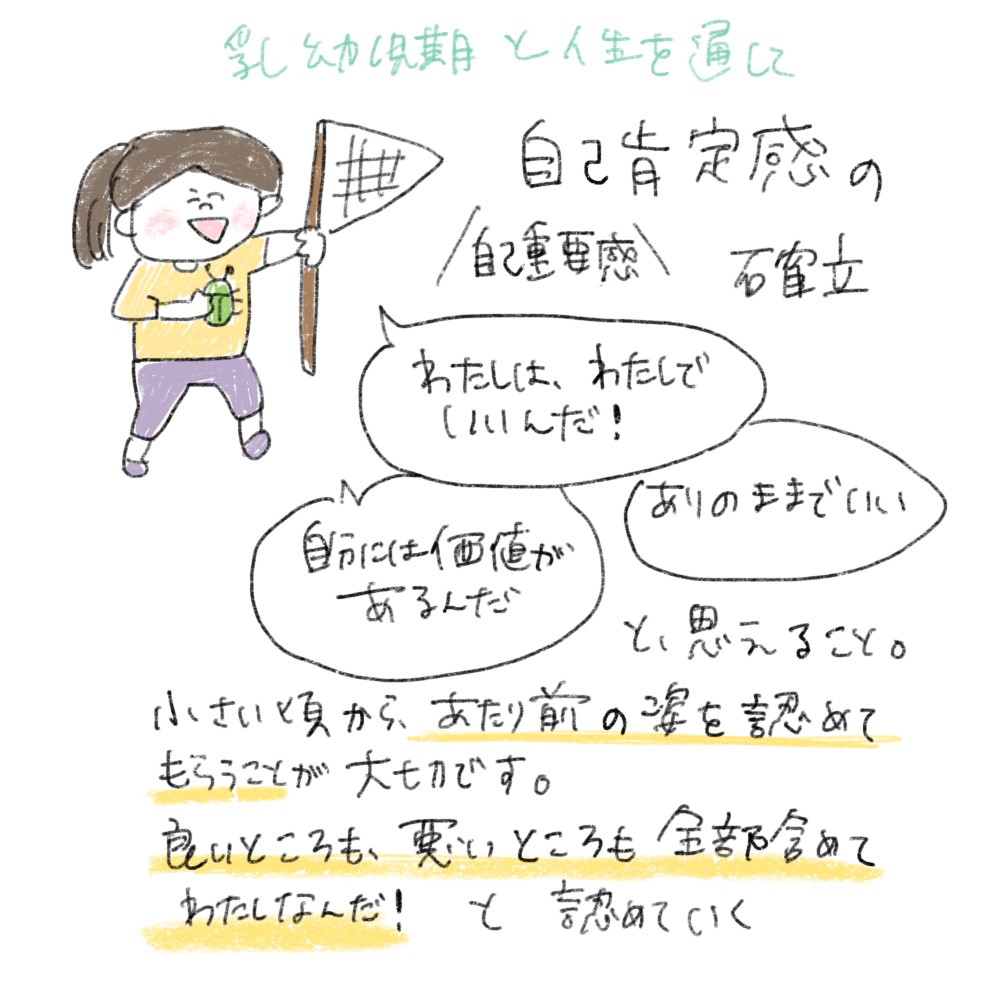 乳幼児期と人生を通して
自己肯定感の
自己重要感
確立
わたしは、わたしで
いいんだ!
ありのままでいい
自分には価値が
あるんだ
と、思えること。
小さい頃から、あたり前の姿を認めて
もらうことが大切です。
良いところも、悪いところも全部含めて
わたしなんだ! と認めていく